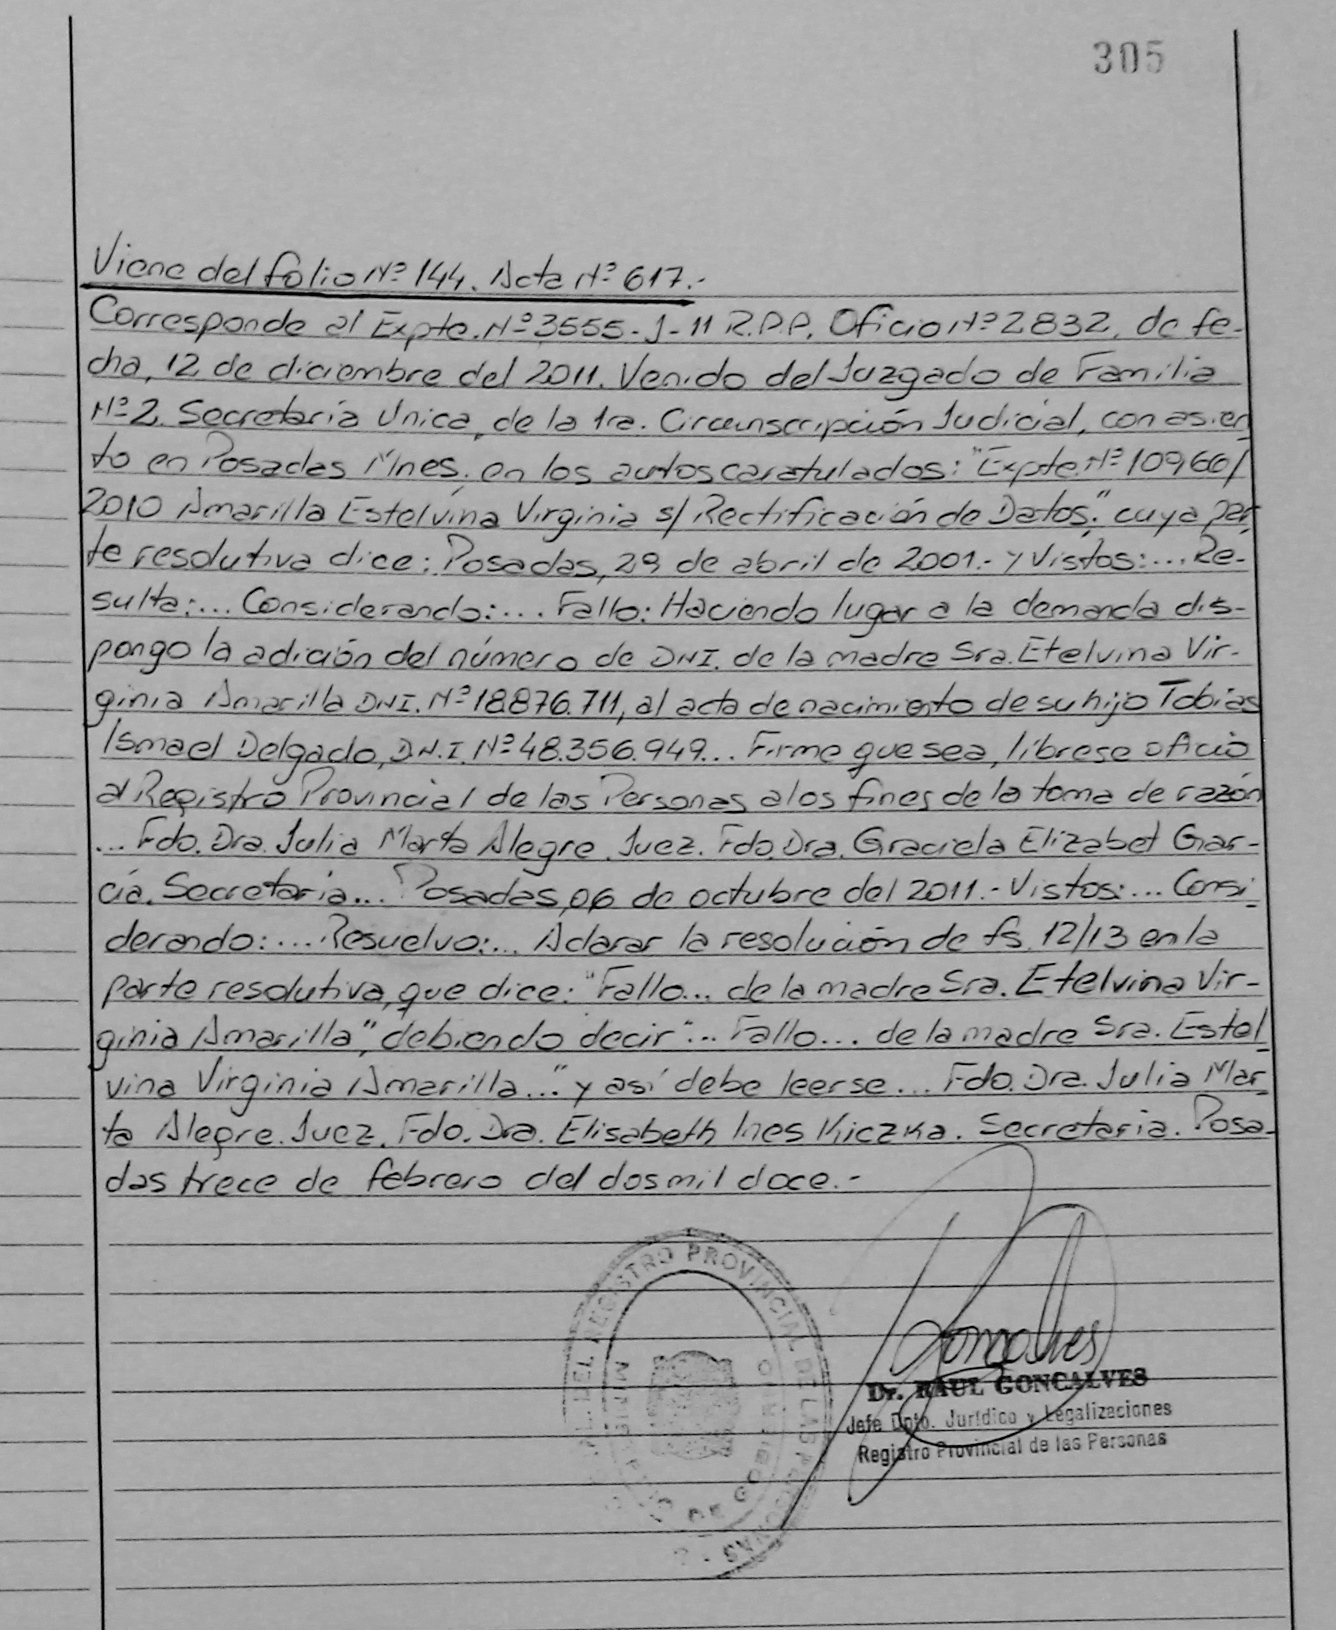 305
Viene del folio Nº 144. Acta Nº 617.-
Corresponde al Expte. Nº 3555-J-11 R.P.P. Oficio Nº 2832, de fe-
cha, 12 de diciembre del 2011. Venido del Juzgado de Familia
Nº 2. Secretaría Unica, de la 1ra. Circunscripción Judicial, con asien
to en Posadas Mnes. en los autos caratulados: "Expte. Nº 10966/
2010 Amarilla Estelvina Virginia s/ Rectificación de Datos." cuya par
te resolutiva dice: Posadas, 29 de abril de 2001.- y Vistos:... Re-
sulta:... Considerando:... Fallo: Haciendo lugar a la demanda dis-
pongo la adición del número de DNI. de la madre Sra. Etelvina Vir-
ginia Amarilla DNI. Nº 18.876.711, al acta de nacimiento de su hijo Tobias
Ismael Delgado, D.N.I. Nº 48.356.949... Firme que sea, líbrese oficio
al Registro Provincial de las Personas a los fines de la toma de razón
... Fdo. Dra. Julia Marta Alegre. Juez. Fdo. Dra. Graciela Elizabet Gar-
cía. Secretaria... Posadas, 06 de octubre del 2011.- Vistos:... Consi
derando:... Resuelvo:... Aclarar la resolución de fs. 12/13 en la
parte resolutiva, que dice: "Fallo... de la madre Sra. Etelvina Vir-
ginia Amarilla", debiendo decir "... Fallo... de la madre Sra. Estel
vina Virginia Amarilla..." y así debe leerse... Fdo. Dra. Julia Mar
ta Alegre. Juez. Fdo. Dra. Elisabeth Ines Kiczka. Secretaria. Posa-
das trece de febrero del dos mil doce.-
DEL REGISTRO PROVINCIAL DE LAS PERSONAS
MINISTERIO DE GOBIERNO
Goncalves
Dr. RAUL GONCALVES
Jefe Dpto. Jurídico y Legalizaciones
Registro Provincial de las Personas